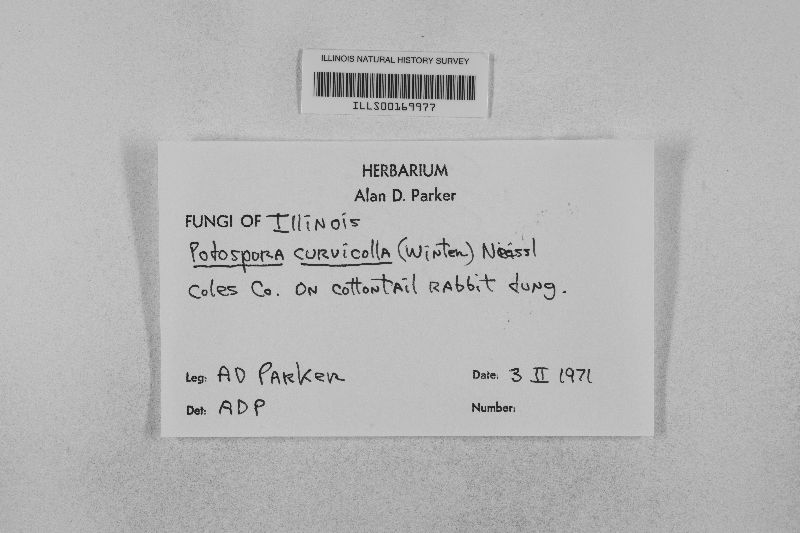 ILLINOIS NATURAL HISTORY SURVEY
ILLS00169977
HERBARIUM
Alan D. Parker
FUNGI OF Illinois
Podospora curvicolla (Winter) Niessl
Coles Co. on cottontail rabbit dung.
Leg: AD Parker
Date: 3 II 1971
Det: ADP
Number: